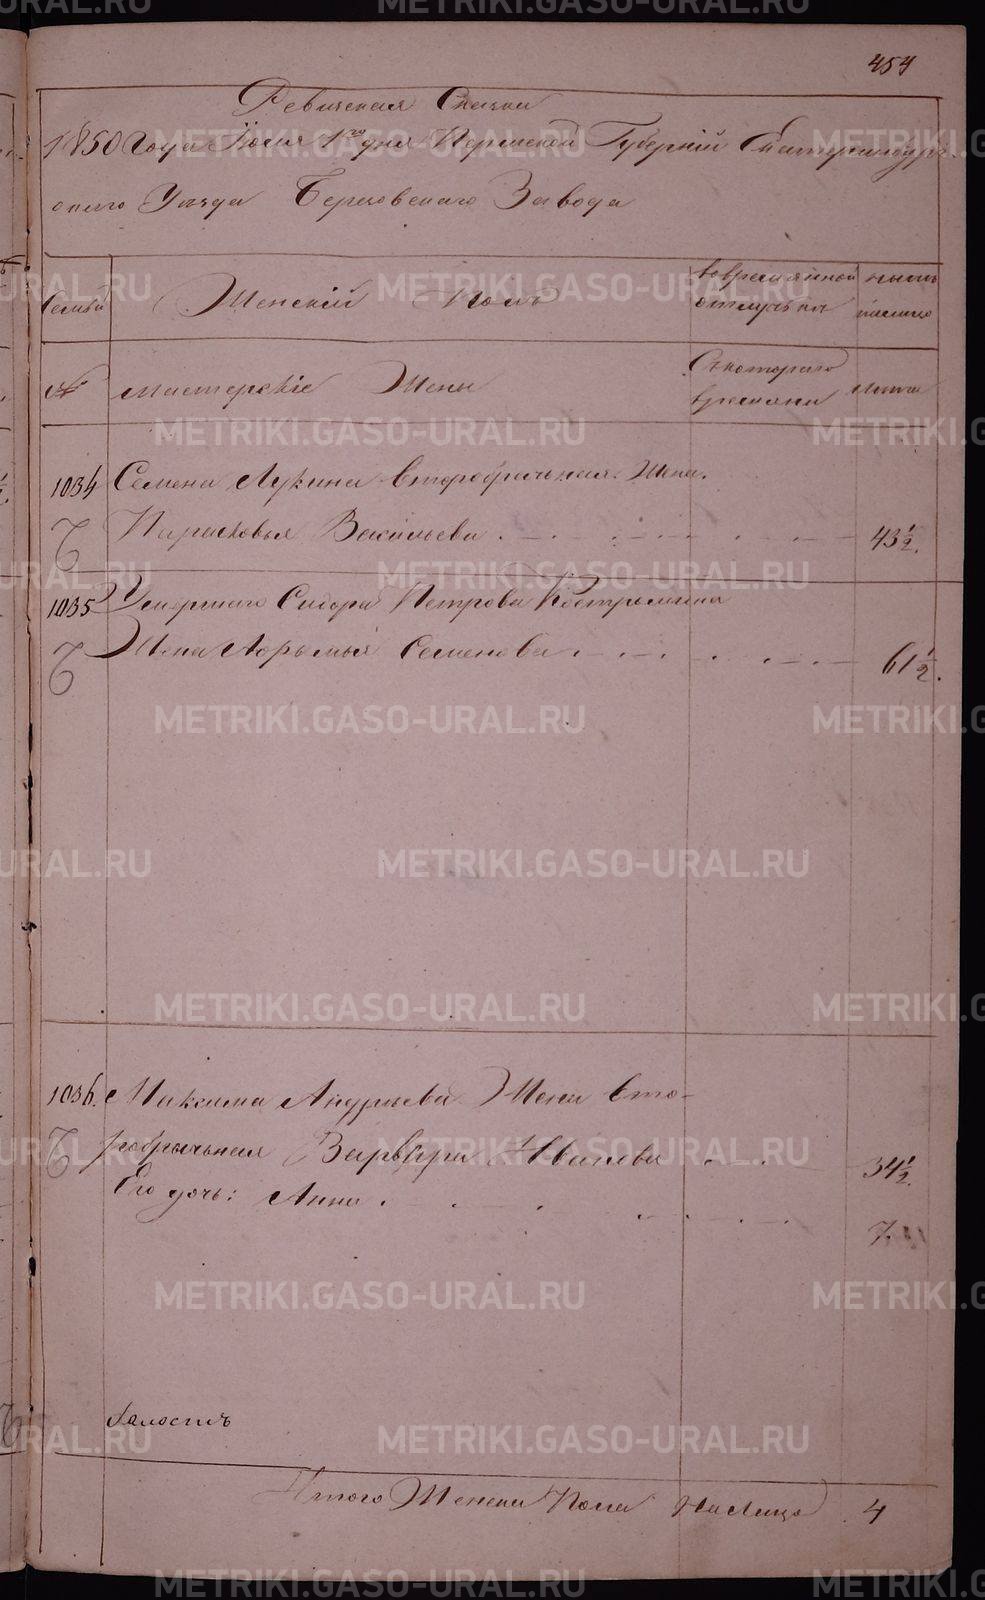 454
Ревиженая Сказка
1850 Года Июля 1го дня Пермской Губернiй Екатеринбург-
скаго Уезда Березовскаго Завода
Семьи Женскiй Полъ вовремянной ныне
отлучьки налицо
№ мастерскiе Жены Скотораго лета
времяни
1034 Семена Лукина второбрачьная Жена.
Парасковья Васильева 43 1/2.
1035 Умершаго Сидора Петрова Костромина
Жена Семенова 61 1/2.
1036. Максима Андреева Жена Вто-
робрачьная Варвара Иванова 34 1/2.
Его дочь: Анна 7
холостъ
Итого Женска Пола На Лицо 4
METRIKI.GASO-URAL.RU